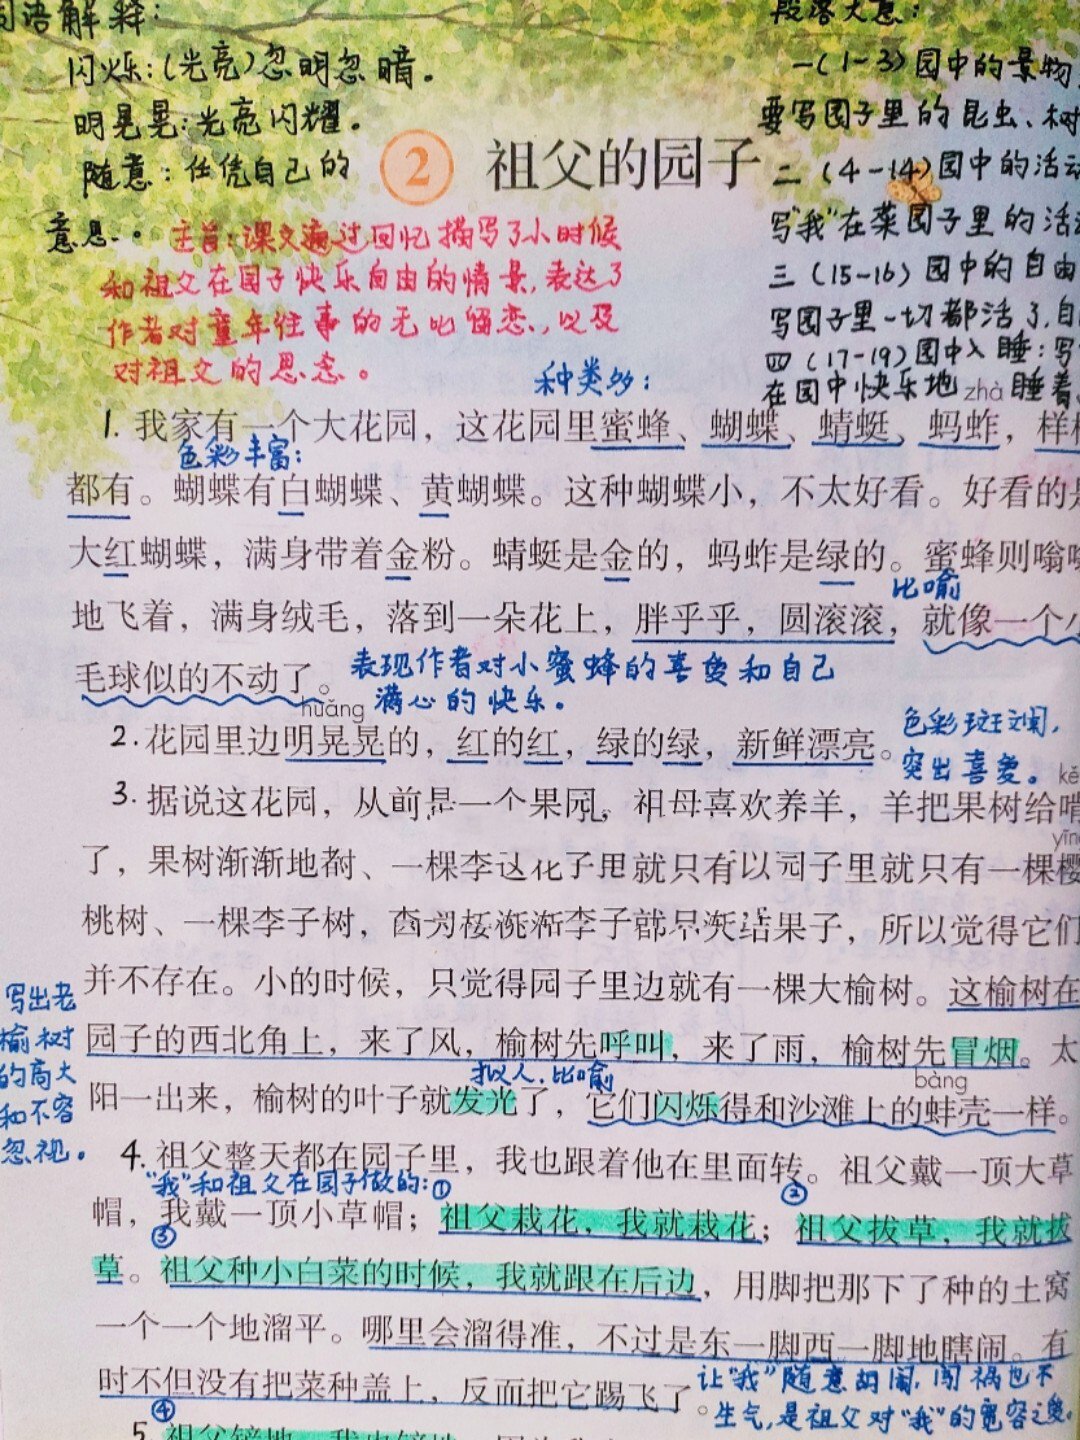 词语解释：
闪烁：（光亮）忽明忽暗。
明晃晃：光亮闪耀。
随意：任凭自己的
意思。
段落大意：
一（1-3）园中的景物
要写园子里的昆虫、树
二（4-14）园中的活动
写"我"在菜园子里的活动
三（15-16）园中的自由
写园子里一切都活了，自
四（17-19）园中入睡：写
在园中快乐地 睡着
zhà
2 祖父的园子
主旨：课文通过回忆描写了小时候
和祖父在园子快乐自由的情景，表达了
作者对童年往事的无比留恋，以及
对祖父的思念。
种类多：
1. 我家有一个大花园，这花园里蜜蜂、蝴蝶、蜻蜓、蚂蚱，样样
色彩丰富：
都有。蝴蝶有白蝴蝶、黄蝴蝶。这种蝴蝶小，不太好看。好看的是
大红蝴蝶，满身带着金粉。蜻蜓是金的，蚂蚱是绿的。蜜蜂则嗡嗡
比喻
地飞着，满身绒毛，落到一朵花上，胖乎乎，圆滚滚，就像一个小
毛球似的不动了。
表现作者对小蜜蜂的喜爱和自己
满心的快乐。
huǎng
2. 花园里边明晃晃的，红的红，绿的绿，新鲜漂亮。
色彩斑斓，
突出喜爱。
kěn
3. 据说这花园，从前是一个果园。祖母喜欢养羊，羊把果树给啃
yīng
了，果树渐渐地 、一棵李 子里就只有 园子里就只有一棵樱
桃树、一棵李子树， 李子 结果子，所以觉得它们
并不存在。小的时候，只觉得园子里边就有一棵大榆树。这榆树在
写出老
榆树
的高大
和不容
忽视。
园子的西北角上，来了风，榆树先呼叫，来了雨，榆树先冒烟。太
拟人、比喻
bàng
阳一出来，榆树的叶子就发光了，它们闪烁得和沙滩上的蚌壳一样。
4. 祖父整天都在园子里，我也跟着他在里面转。祖父戴一顶大草
"我"和祖父在园子做的：① ②
帽，我戴一顶小草帽；祖父栽花，我就栽花；祖父拔草，我就拔
③
草。祖父种小白菜的时候，我就跟在后边，用脚把那下了种的土窝
一个一个地溜平。哪里会溜得准，不过是东一脚西一脚地瞎闹。有
时不但没有把菜种盖上，反而把它踢飞了。
让"我"随意胡闹，闯祸也不
生气，是祖父对"我"的宽容之爱。
④
5. 祖父铲地，我也铲地